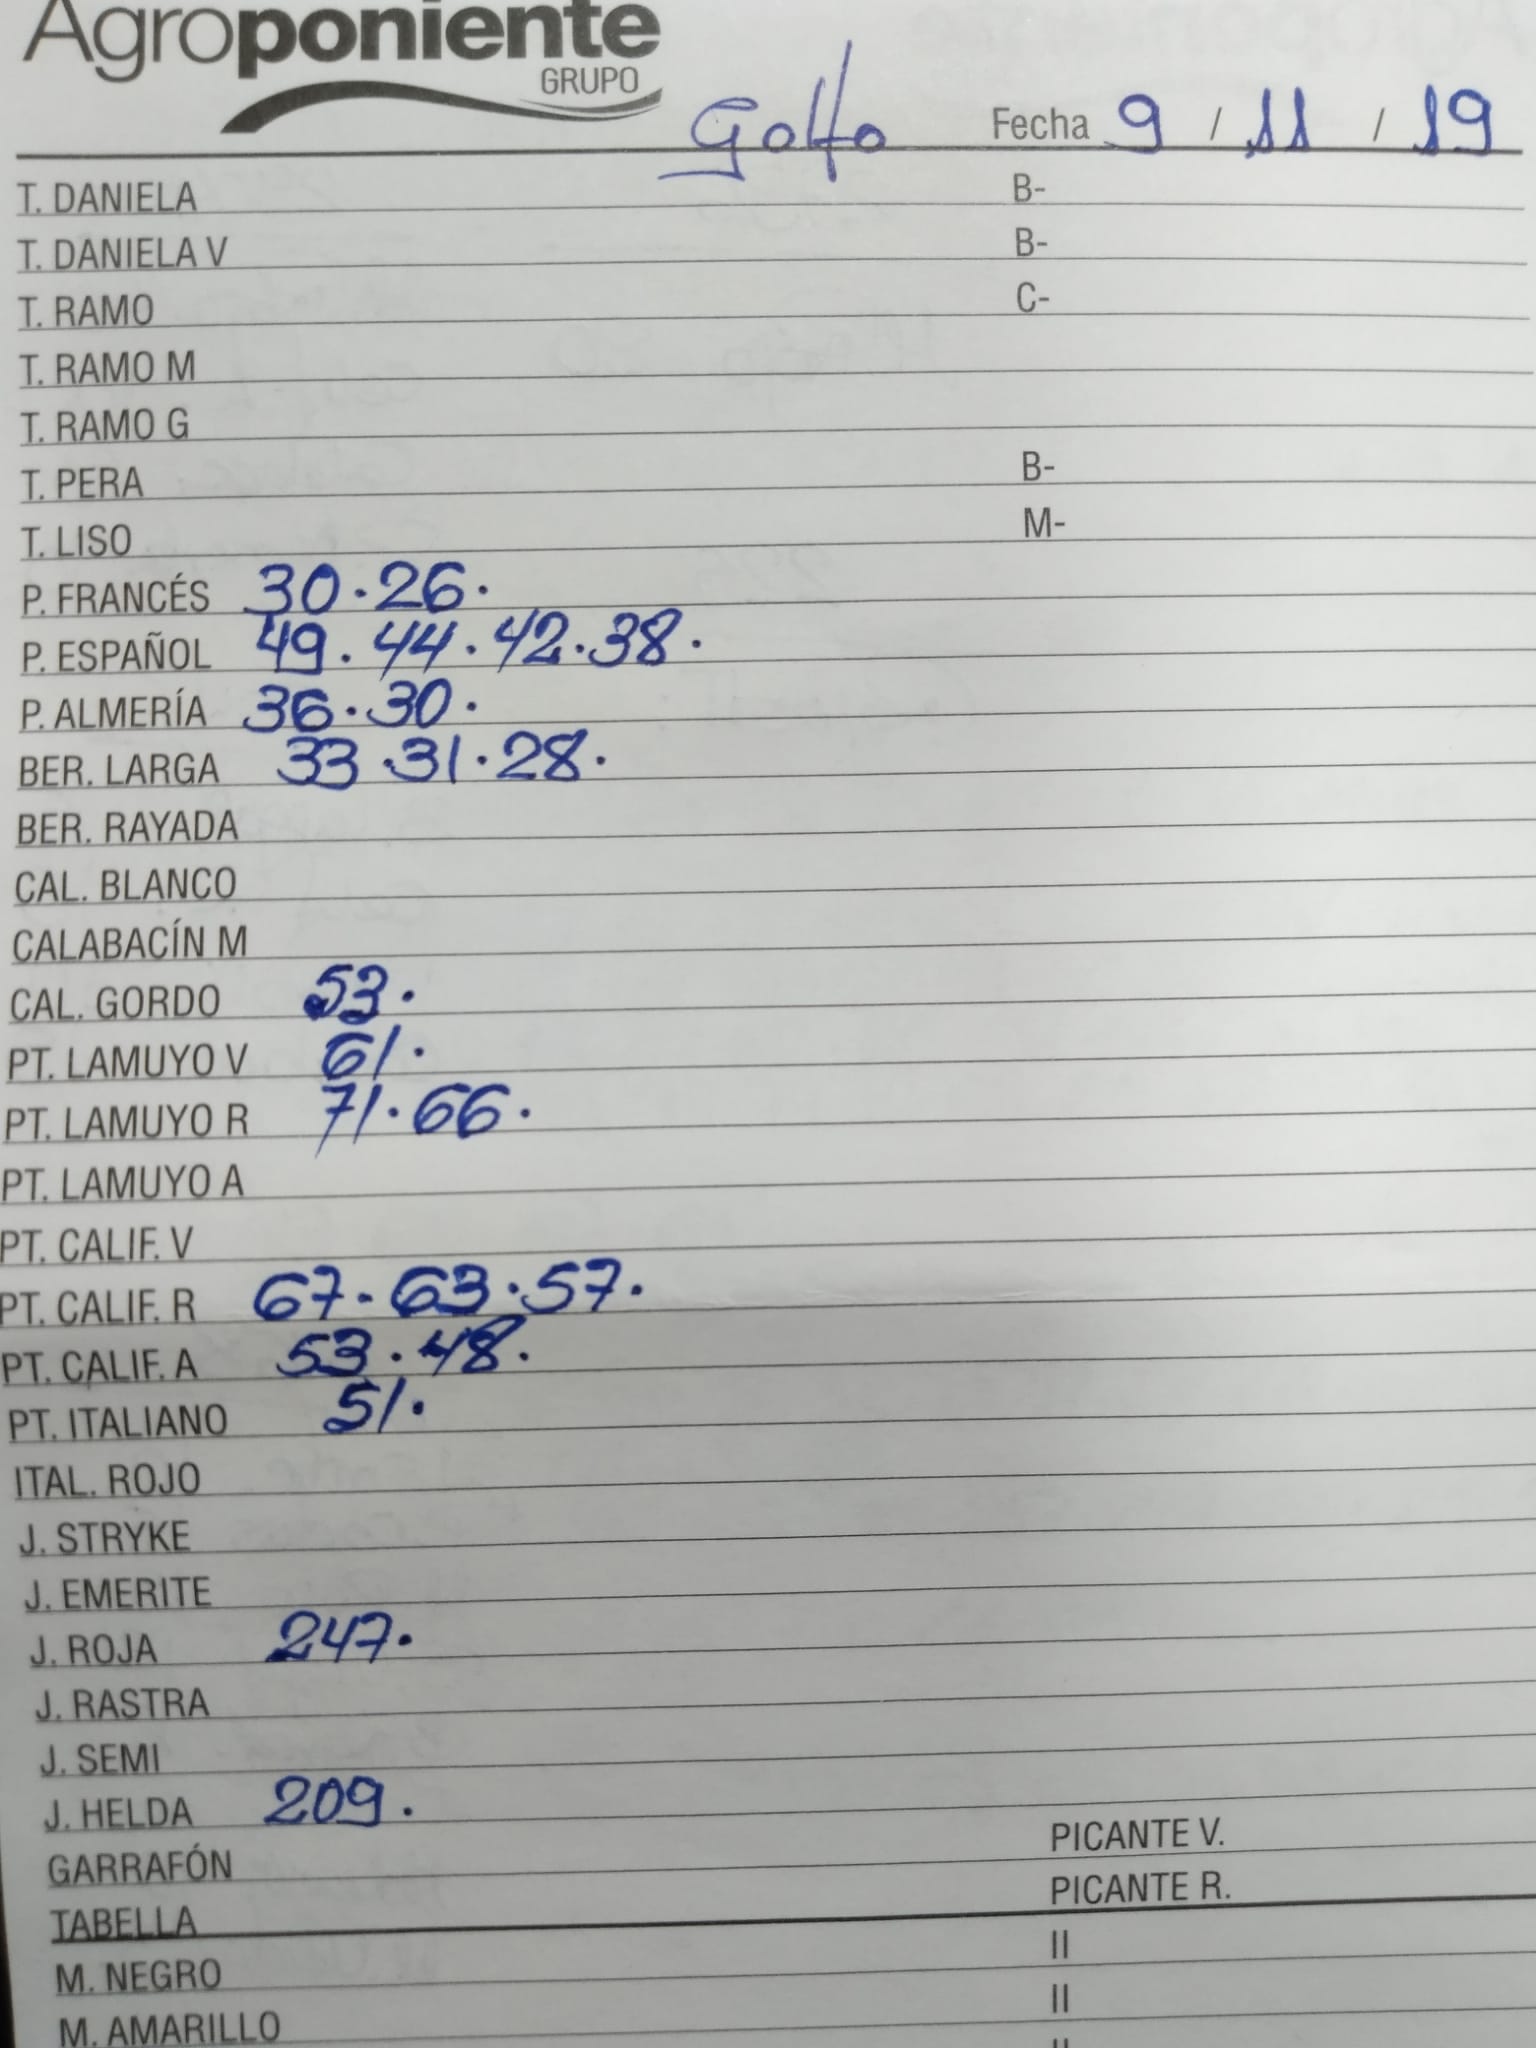 Agroponiente
GRUPO
Golfo Fecha 9 / 11 / 19
T. DANIELA B-
T. DANIELA V B-
T. RAMO C-
T. RAMO M
T. RAMO G
T. PERA B-
T. LISO M-
P. FRANCÉS 30.26.
P. ESPAÑOL 49.44.42.38.
P. ALMERÍA 36.30.
BER. LARGA 33.31.28.
BER. RAYADA
CAL. BLANCO
CALABACÍN M
CAL. GORDO 53.
PT. LAMUYO V 61.
PT. LAMUYO R 71.66.
PT. LAMUYO A
PT. CALIF. V
PT. CALIF. R 67.63.57.
PT. CALIF. A 53.48.
PT. ITALIANO 51.
ITAL. ROJO
J. STRYKE
J. EMERITE
J. ROJA 247.
J. RASTRA
J. SEMI
J. HELDA 209.
GARRAFÓN PICANTE V.
TABELLA PICANTE R.
M. NEGRO II
M. AMARILLO II